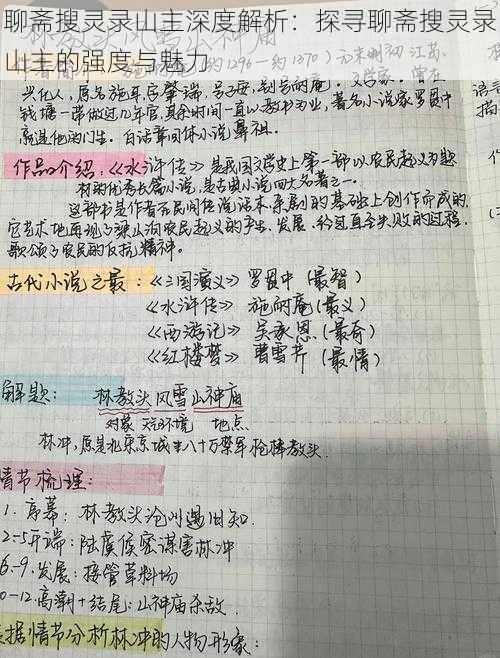 聊斋搜灵录山主深度解析：探寻聊斋搜灵录
山主的强度与魅力
兴化人，原名施耳，字肇瑞，号子安，别号耐庵。
钱塘一带做过几年官，其余时间一直以教书为业，著名小说家罗贯中
就是他的门生。白话章回体小说鼻祖。
作品介绍：《水浒传》是我国文学史上第一部以农民起义为题
材的优秀长篇小说，是古典小说四大名著之一。
这部书是作者在民间传说话本、杂剧的基础上创作而成的，
它艺术地再现了梁山泊农民起义的产生、发展、经过直至失败的过程，
歌颂了农民的反抗精神。
古代小说之最：《三国演义》罗贯中（最智）
《水浒传》施耐庵（最义）
《西游记》吴承恩（最奇）
《红楼梦》曹雪芹（最情）
解题：林教头风雪山神庙
对象 环境 地点
林冲，原是北宋京城八十万禁军枪棒教头.
情节梳理：
1.序幕：林教头沧州遇旧知.
2-5开端：陆虞侯密谋害林冲
6-9.发展：接管草料场
0-12.高潮+结尾：山神庙杀敌.
据情节分析林冲的人物形象：